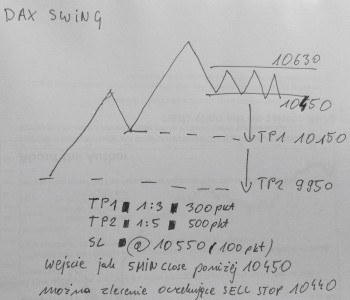 DAX SWING
10630
10450
TP1 10150
TP2 9950
TP1 1:3 300pkt
TP2 1:5 500pkt
SL @ 10550, 100pkt)
wejście jak 5MIN close poniżej 10450
można zlecenie oczekujące SELL STOP 10440